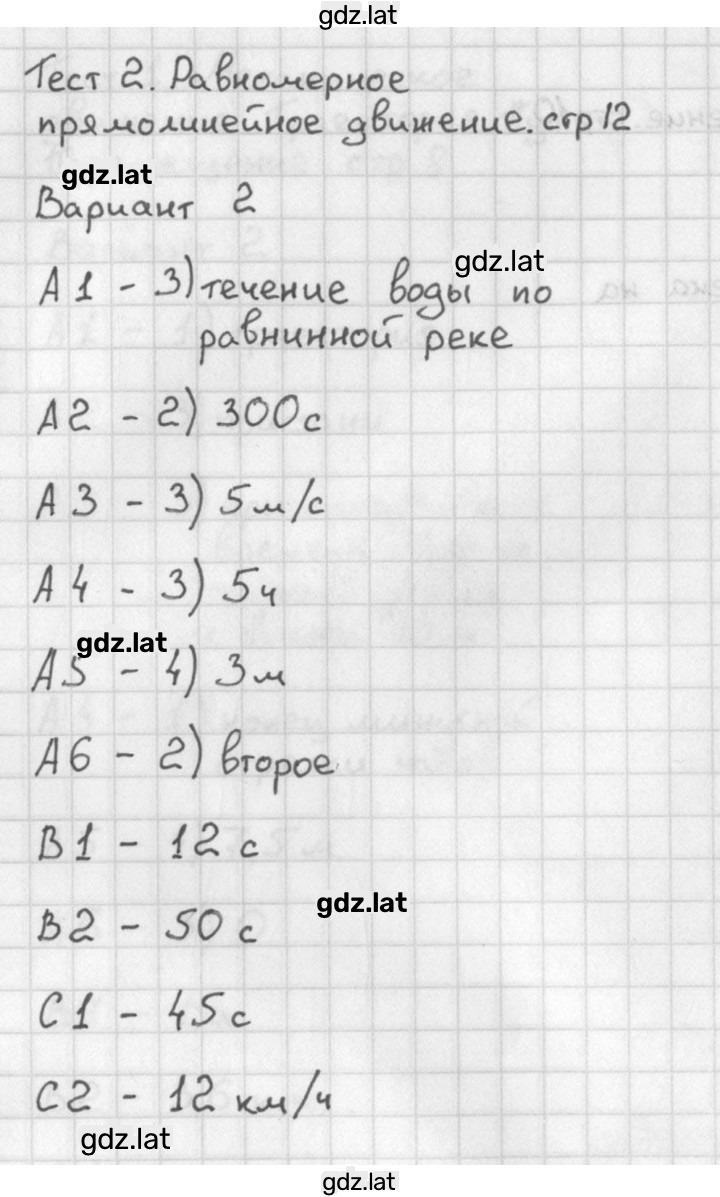 gdz.lat
Тест 2. Равномерное
прямолинейное движение. стр 12
gdz.lat
Вариант 2
gdz.lat
А1 - 3) течение воды по
равнинной реке
А2 - 2) 300 с
А3 - 3) 5 м/с
А4 - 3) 5 ч
gdz.lat
А5 - 4) 3 м
А6 - 2) второе
В1 - 12 с
gdz.lat
В2 - 50 с
С1 - 45 с
С2 - 12 км/ч
gdz.lat
gdz.lat